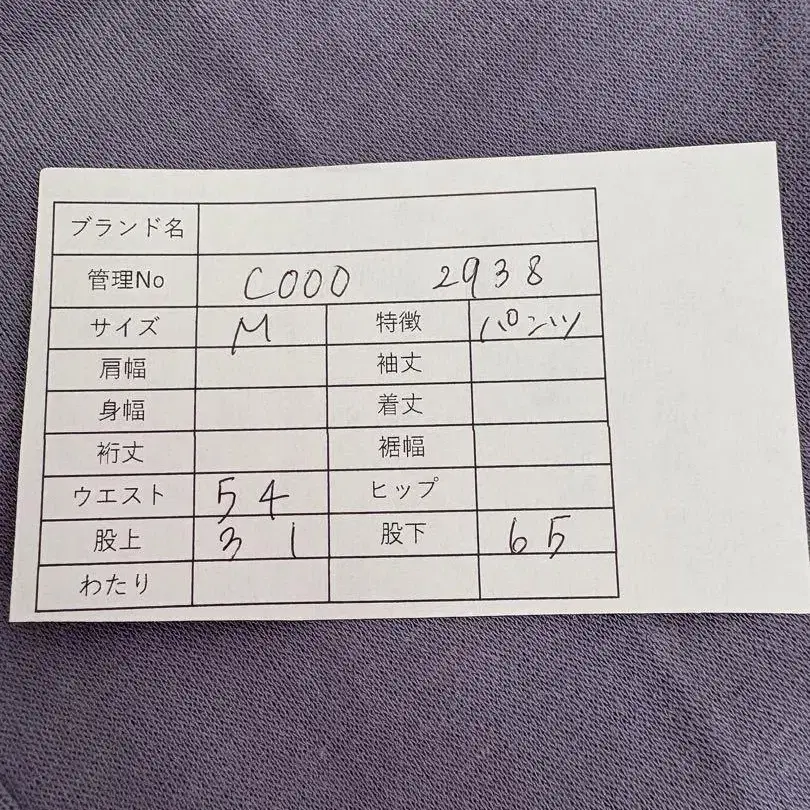 ブランド名
管理No C000 2938
サイズ M 特徴 パンツ
肩幅 袖丈
身幅 着丈
裄丈 裾幅
ウエスト 54 ヒップ
股上 31 股下 65
わたり